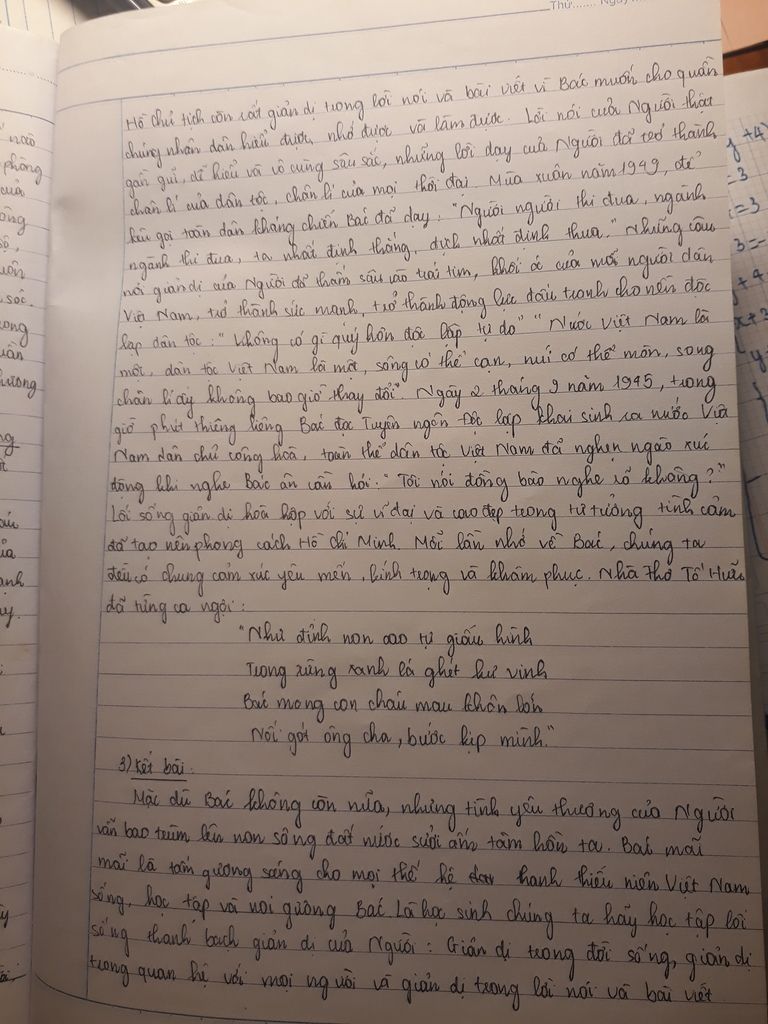 Thứ....... Ngày....
Hồ chủ tịch còn rất giản dị trong lời nói và bài viết vì Bác muốn cho quần
chúng nhân dân hiểu được, nhớ được và làm được. Lời nói của Người thật
gần gũi, dễ hiểu và vô cùng sâu sắc, những lời dạy của Người đã trở thành
chân lí của dân tộc, chân lí của mọi thời đại. Mùa xuân năm 1949, để
kêu gọi toàn dân kháng chiến Bác đã dạy: "Người người thi đua, ngành
ngành thi đua, ta nhất định thắng, địch nhất định thua." Những câu
nói giản dị của Người đã thấm sâu vào trái tim, khối óc của mỗi người dân
Việt Nam, trở thành sức mạnh, trở thành động lực đấu tranh cho nền độc
lập dân tộc: "Không có gì quý hơn độc lập tự do" "Nước Việt Nam là
một, dân tộc Việt Nam là một, sông có thể cạn, núi có thể mòn, song
chân lí ấy không bao giờ thay đổi". Ngày 2 tháng 9 năm 1945, trong
giờ phút thiêng liêng Bác đọc Tuyên ngôn Độc lập khai sinh ra nước Việt
Nam dân chủ cộng hoà, toàn thể dân tộc Việt Nam đã nghẹn ngào xúc
động khi nghe Bác ân cần hỏi: "Tôi nói đồng bào nghe rõ không?"
Lối sống giản dị hoà hợp với sự vĩ đại và cao đẹp trong tư tưởng tình cảm
đã tạo nên phong cách Hồ Chí Minh. Mỗi lần nhớ về Bác, chúng ta
đều có chung cảm xúc yêu mến, kính trọng và khâm phục. Nhà thơ Tố Hữu
đã từng ca ngợi:
"Như đỉnh non cao tự giấu hình
Trong rừng xanh lá ghét hư vinh
Bác mong con cháu mau khôn lớn
Nối gót ông cha, bước kịp mình."
3) Kết bài.
Mặc dù Bác không còn nữa, nhưng tình yêu thương của Người
vẫn bao trùm lên non sông đất nước sưởi ấm tâm hồn ta. Bác mãi
mãi là tấm gương sáng cho mọi thế hệ thanh thiếu niên Việt Nam
sống, học tập và noi gương Bác. Là học sinh chúng ta hãy học tập lối
sống thanh bạch giản dị của Người: Giản dị trong đời sống, giản dị
trong quan hệ với mọi người và giản dị trong lời nói và bài viết